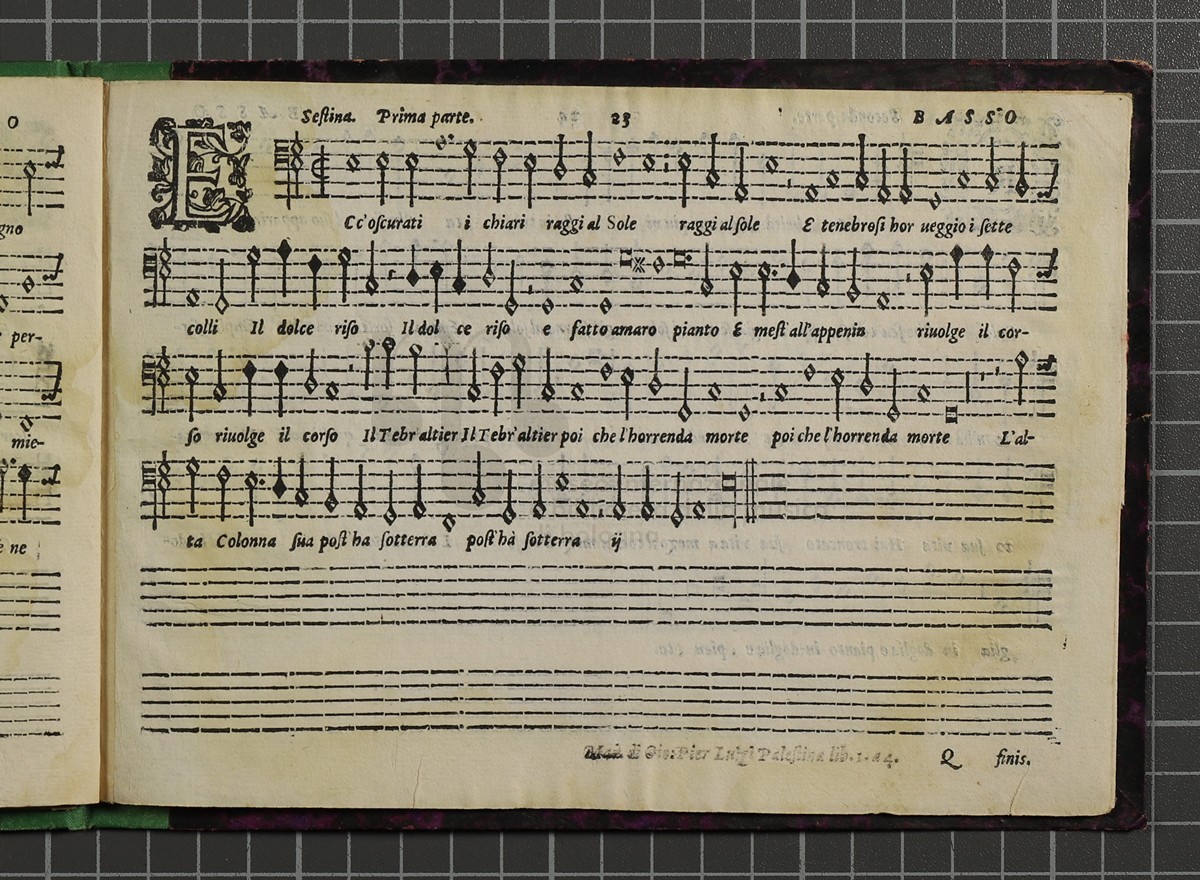 O
gno
per-
mie-
e ne
Sestina. Prima parte. 23 BASSO
E Cc'oscurati i chiari raggi al Sole raggi al sole E tenebrosi hor ueggio i sette
colli Il dolce riso Il dol ce riso e fatto amaro pianto E mest'all'appenin riuolge il cor-
so riuolge il corso Il Tebr'altier Il Tebr'altier poi che l'horrenda morte poi che l'horrenda morte L'al-
ta Colonna sua post'ha sotterra post'hà sotterra ij
Mad. di Gio: Pier Luigi Palestina lib. 1. a 4. Q finis.